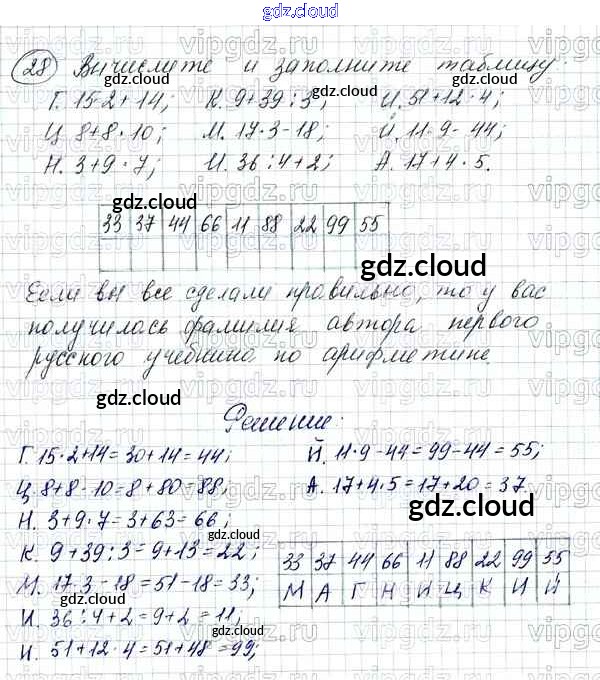 gdz.cloud
28 Вычислите и заполните таблицу:
Г. 15·2+14; К. 9+39:3; И. 51+12·4;
Ц 8+8·10; М. 17·3-18; Й. 11·9-44;
Н. 3+9·7; И. 36:4+2; А. 17+4·5.
33 37 44 66 11 88 22 99 55
gdz.cloud
Если вы все сделали правильно, то у вас
получилась фамилия автора первого
русского учебника по арифметике.
gdz.cloud
Решение:
Г. 15·2+14=30+14=44; Й. 11·9-44=99-44=55;
Ц. 8+8·10=8+80=88; А. 17+4·5=17+20=37
Н. 3+9·7=3+63=66;
К. 9+39:3=9+13=22;
М. 17·3-18=51-18=33;
И. 36:4+2=9+2=11;
И. 51+12·4=51+48=99;
33 37 44 66 11 88 22 99 55
М А Г Н И Ц К И Й
gdz.cloud
gdz.cloud